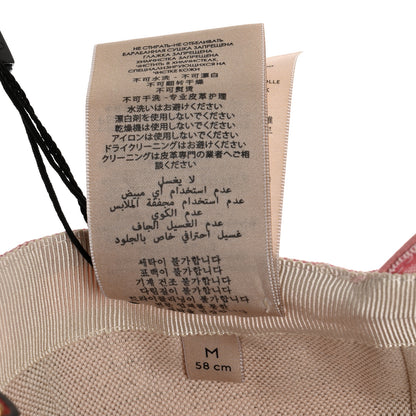 НЕ СТИРАТЬ-НЕ ОТБЕЛИВАТЬ
БАРАБАННАЯ СУШКА ЗАПРЕЩЕНА
ГЛАЖКА ЗАПРЕЩЕНА
ХИМЧИСТКА ЗАПРЕЩЕНА
ЧИСТИТЬ В ХИМЧИСТКАХ,
СПЕЦИАЛИЗИРУЮЩИХСЯ НА
ЧИСТКЕ КОЖИ
不可水洗-不可漂白
不可翻转干燥
不可熨烫
不可干洗-专业皮革护理
水洗いはお避けください
漂白剤を使用しないでください
乾燥機は使用しないでください
アイロンは使用しないでください
ドライクリーニングはお避けください
クリーニングは皮革専門の業者へご相
談ください
لا يغسل
عدم استخدام أي مبيض
عدم استخدام مجففة الملابس
عدم الكوي
عدم الغسيل الجاف
غسيل احترافي خاص بالجلود
세탁이 불가합니다
표백이 불가합니다
기계 건조 불가합니다
다림질이 불가합니다
드라이클리닝이 불가합니다
OLLE
M
58 cm